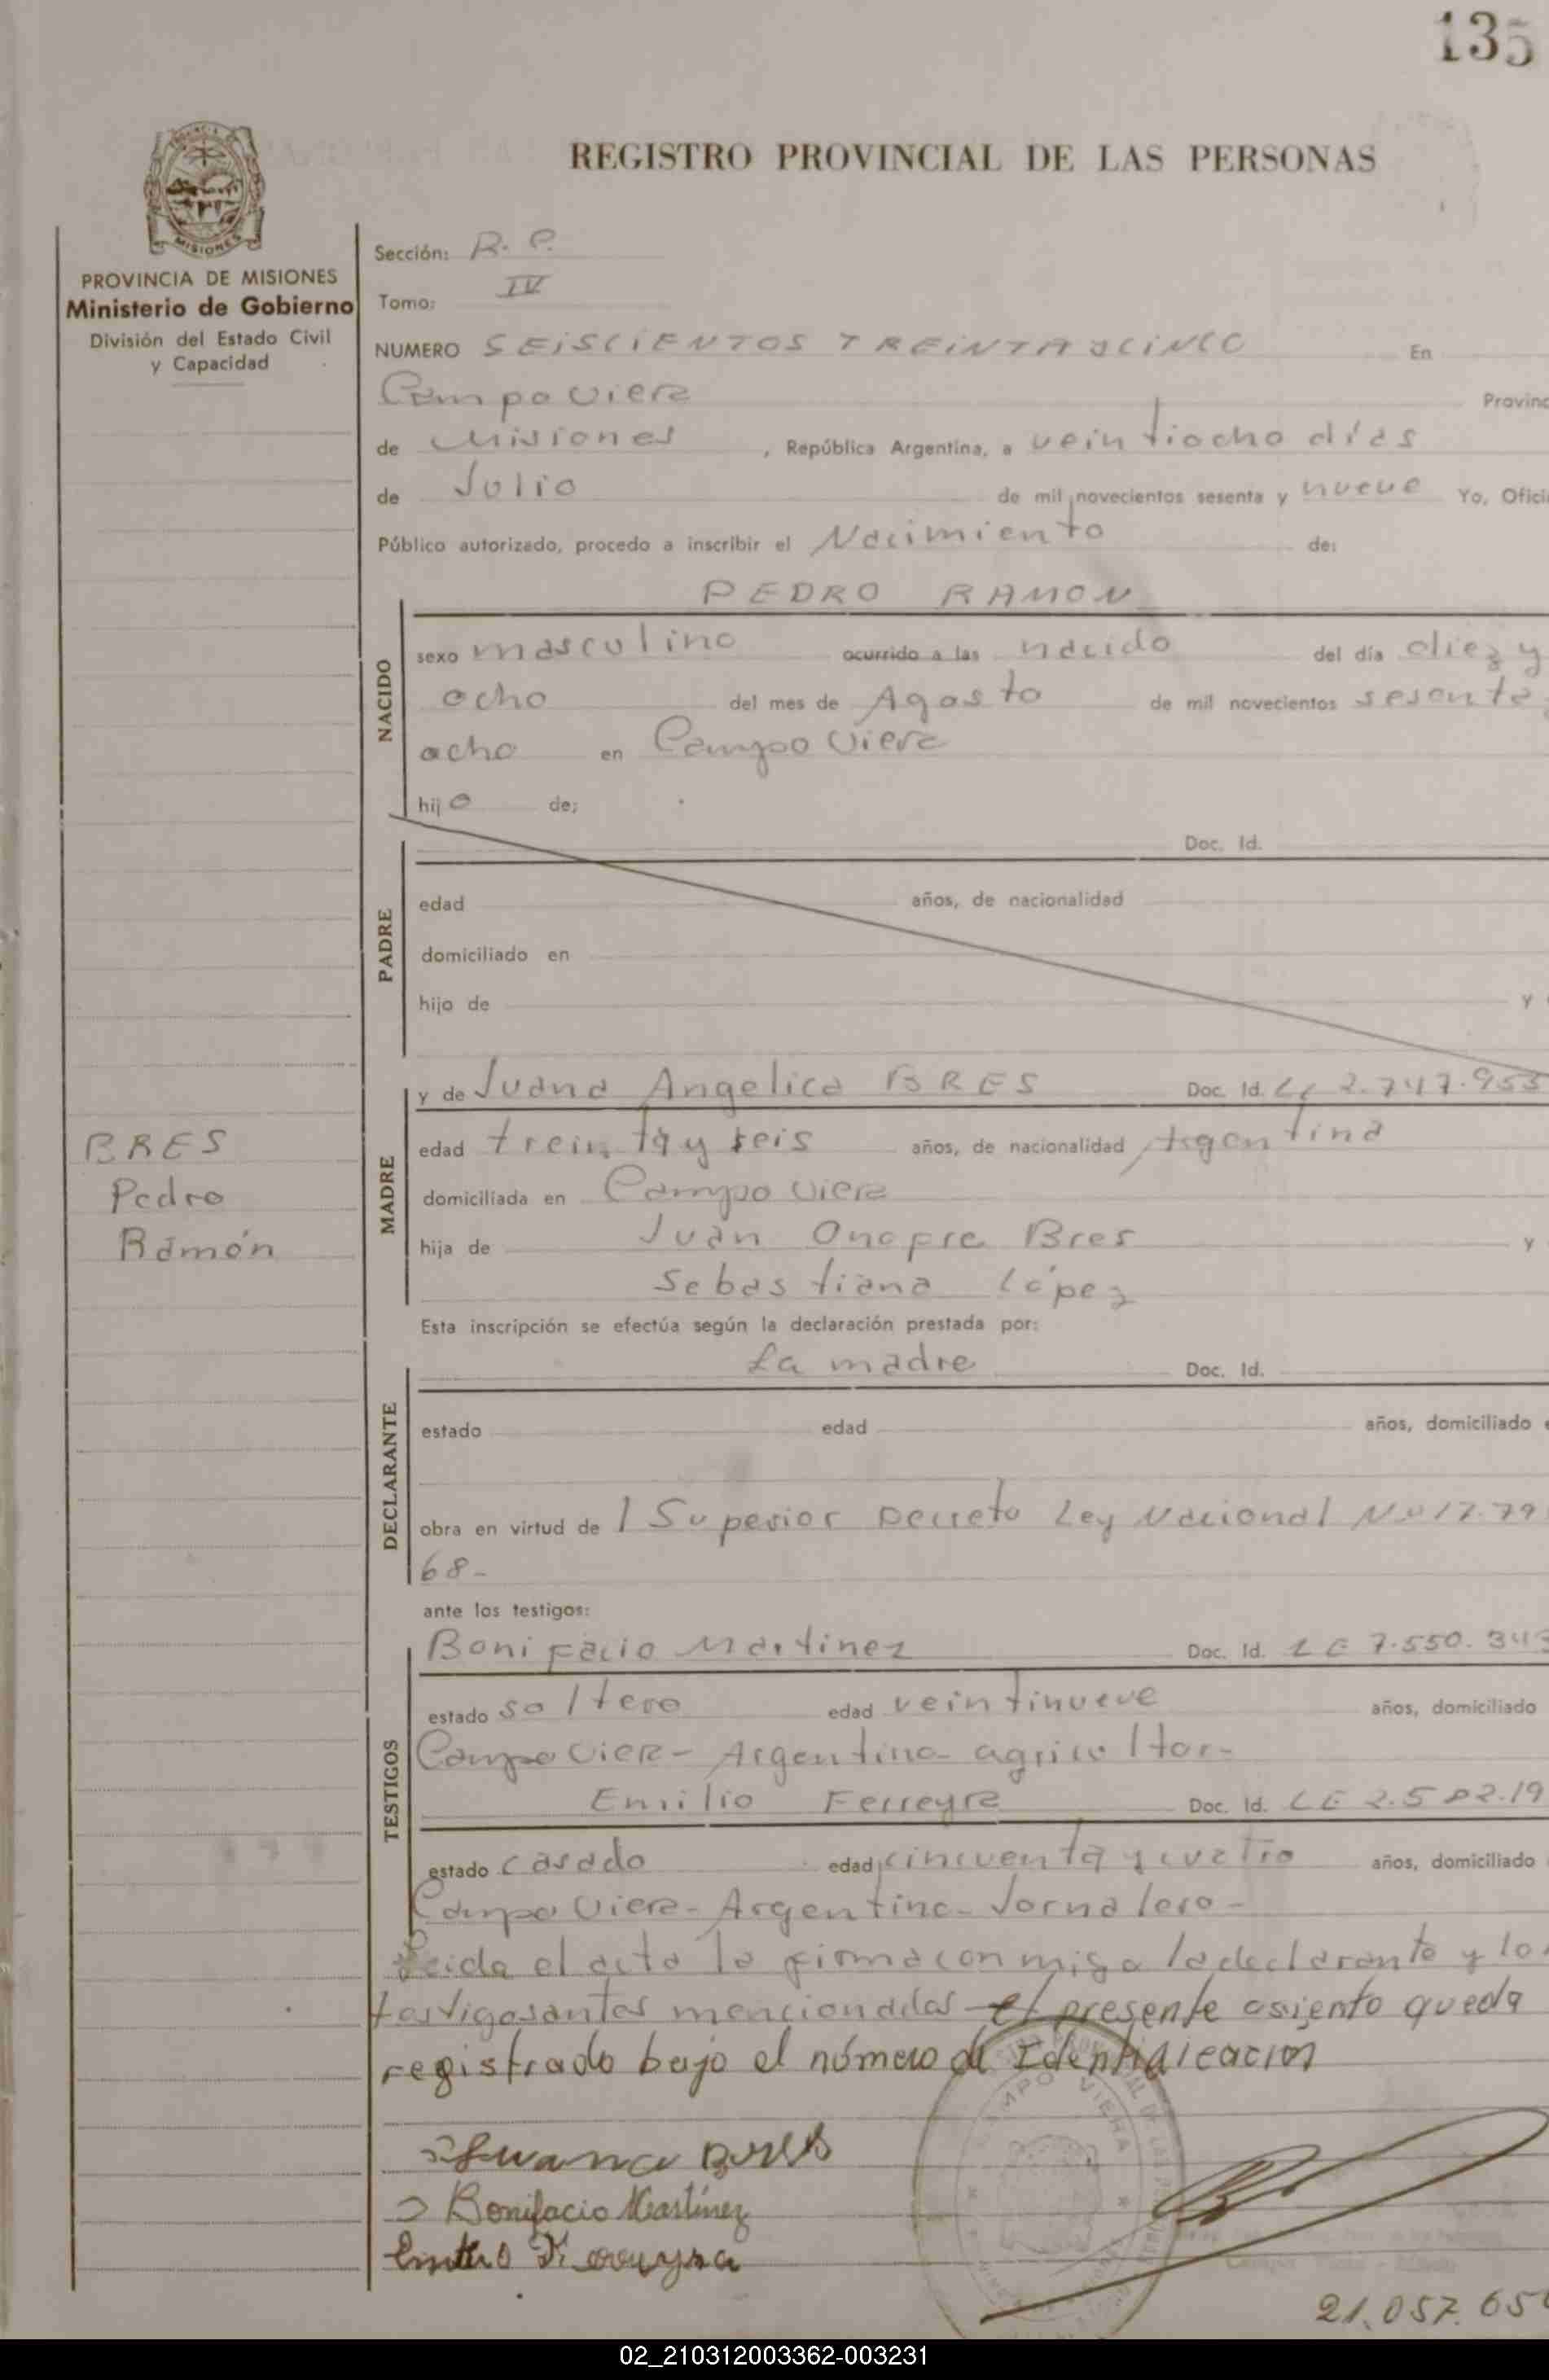 135
REGISTRO PROVINCIAL DE LAS PERSONAS
MISIONES
PROVINCIA DE MISIONES
Ministerio de Gobierno
División del Estado Civil
y Capacidad
Sección: R. P.
Tomo: IV
NUMERO SEISCIENTOS TREINTA Y CINCO En
Campo Viera Provinc
de Misiones , República Argentina, a veintiocho días
de Julio de mil novecientos sesenta y nueve Yo, Ofici
Público autorizado, procedo a inscribir el Nacimiento de:
PEDRO RAMON
NACIDO
sexo masculino ocurrido a las nacido del día diez y
ocho del mes de Agosto de mil novecientos sesenta y
ocho en Campo Viera
hijo de;
PADRE
Doc. Id.
edad años, de nacionalidad
domiciliado en
hijo de y
MADRE
y de Juana Angelica BRES Doc. Id. LC 2.747.953
edad treinta y seis años, de nacionalidad Argentina
domiciliada en Campo Viera
hija de Juan Onofre Bres y
Sebastiana López
BRES
Pedro
Ramón
Esta inscripción se efectúa según la declaración prestada por:
DECLARANTE
La madre Doc. Id.
estado edad años, domiciliado e
obra en virtud de l Superior Decreto Ley Nacional Nº 17.79
68-
ante los testigos:
TESTIGOS
Bonifacio Martinez Doc. Id. LE 7.550.343
estado soltero edad veintinueve años, domiciliado
Campo Viera- Argentino- agricultor-
Emilio Ferreyra Doc. Id. LE 2.502.19
estado casado edad cincuenta y cuatro años, domiciliado
Campo Viera- Argentino- Jornalero-
Leida el acta la firma conmigo la declarante y los
testigos antes mencionados- el presente asiento queda
registrado bajo el número de Identidicacion
CAMPO VIERA
Juana Bres
Bonifacio Martínez
Emilio Ferreyra
21.057.65
02_210312003362-003231